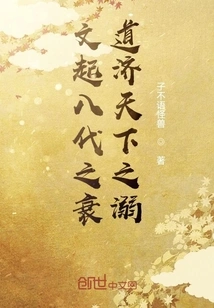 文起八代之衰
道济天下之溺
子不语怪兽 著
创世中文网